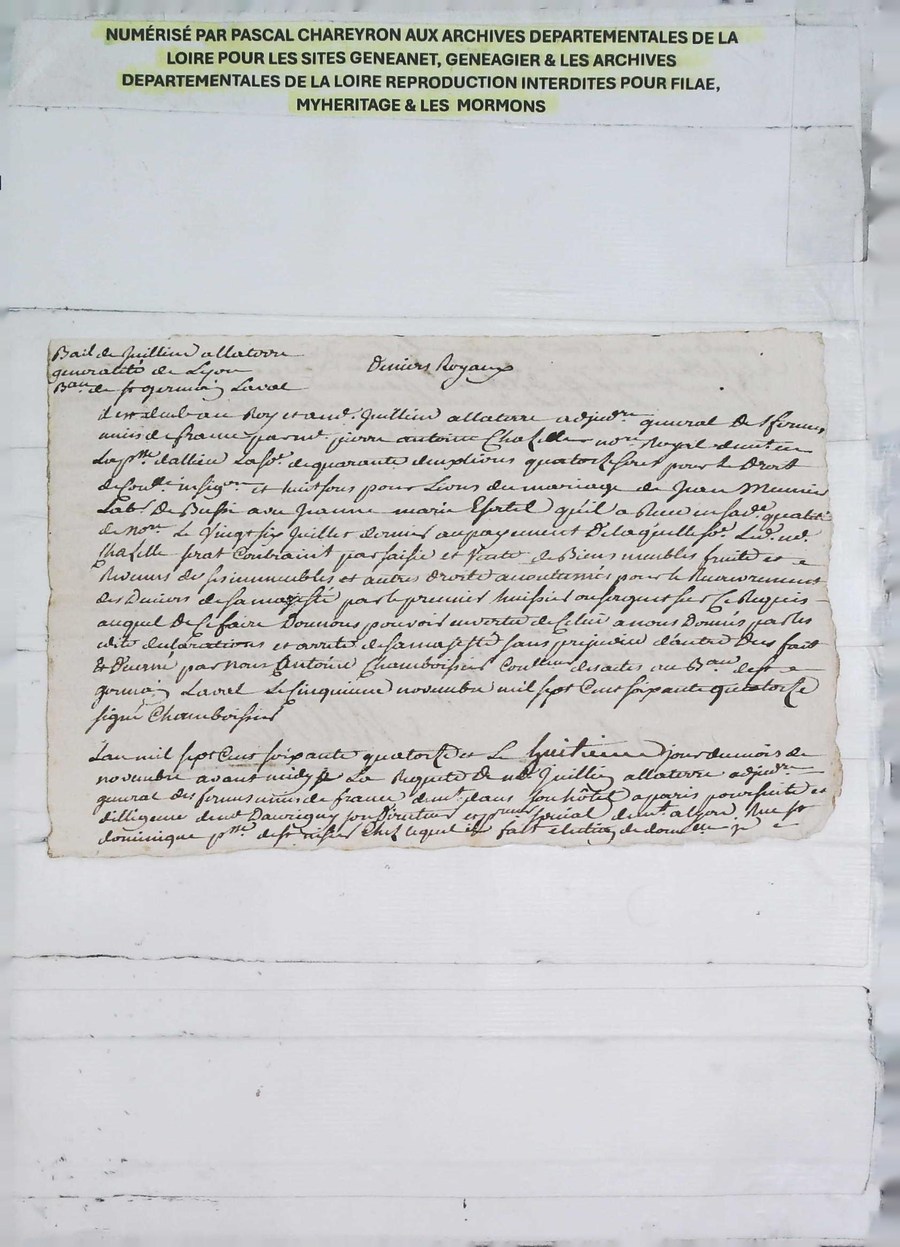 NUMÉRISÉ PAR PASCAL CHAREYRON AUX ARCHIVES DEPARTEMENTALES DE LA
LOIRE POUR LES SITES GENEANET, GENEAGIER & LES ARCHIVES
DEPARTEMENTALES DE LA LOIRE REPRODUCTION INTERDITES POUR FILAE,
MYHERITAGE & LES MORMONS
Bail de Jullien allaterre
generalité de Lyon
Bau de st germain Laval
Deniers Royaux
il est du au Roy et a md. Jullien allaterre adjudre general des fermes
unies de france par me. pierre antoine Chazelle nore. Royal demt. en
La psse dallieu La se. de quarante livres quatorze sols pour le Droit
de et huit sols pour Livres du mariage de Jean Meunier
Labr. De Bussi avec Jeanne marie quil a Receu en sa de. qualité
de nore. Le Vingt six Juillet dernier au payement De laquelle se. Led. me.
Chazelle serat Contraint par saisie et Vente de Biens meubles fruits et
Revenus de ses immeubles et autres droits accoutumés pour le Recouvrement
des Deniers de sa majesté par le premier huissier ou sergent sur Ce Requis
auquel De Ce faire Donnons pouvoir en vertu de Celui a nous Donné par les
edits declarations et arrets de sa majesté sans prejudice d'autre Dus fait
et Decerné par nous Antoine Chamboissier des actes au Bau de st
germain Laval Le Cinquieme novembre mil sept Cent soixante quatorze
signé Chamboissier
Lan mil sept Cent soixante quatorze et Le huitieme jour du mois de
novembre avant midy a La Requete de md. Jullien allaterre adjudre
general des fermes unies de france demt. dans son hôtel a paris poursuite et
dilligence de md Dauvigny son Directeur et special demt. a Lyon Rue st
dominique psse. de st. nisier Chez lequel il fait election de domicille je